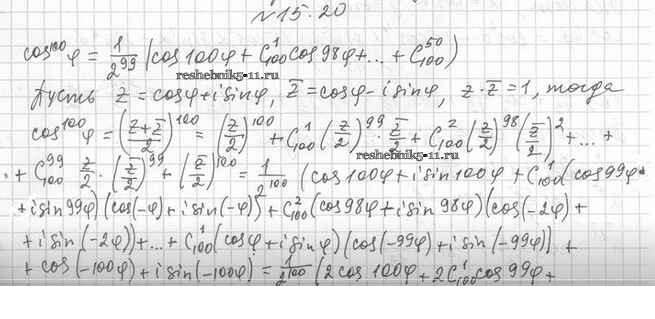 №15.20
cos¹⁰⁰φ = 1/2⁹⁹ (cos100φ + C¹₁₀₀cos98φ + ... + C⁵⁰₁₀₀)
reshebnik5-11.ru
Пусть z = cosφ + i sinφ, z̅ = cosφ - i sinφ, z · z̅ = 1, тогда
cos¹⁰⁰φ = ((z+z̅)/2)¹⁰⁰ = (z/2)¹⁰⁰ + C¹₁₀₀ (z/2)⁹⁹ · z̅/2 + C²₁₀₀ (z/2)⁹⁸ (z̅/2)² + ... +
reshebnik5-11.ru
+ C⁹⁹₁₀₀ z/2 · (z̅/2)⁹⁹ + (z̅/2)¹⁰⁰ = 1/2¹⁰⁰ (cos100φ + i sin100φ + C¹₁₀₀(cos99φ +
+ i sin99φ)(cos(-φ) + i sin(-φ)) + C²₁₀₀(cos98φ + i sin98φ)(cos(-2φ) +
+ i sin(-2φ)) + ... + C¹₁₀₀(cosφ + i sinφ)(cos(-99φ) + i sin(-99φ)) +
+ cos(-100φ) + i sin(-100φ) = 1/2¹⁰⁰ (2cos100φ + 2C¹₁₀₀cos99φ +